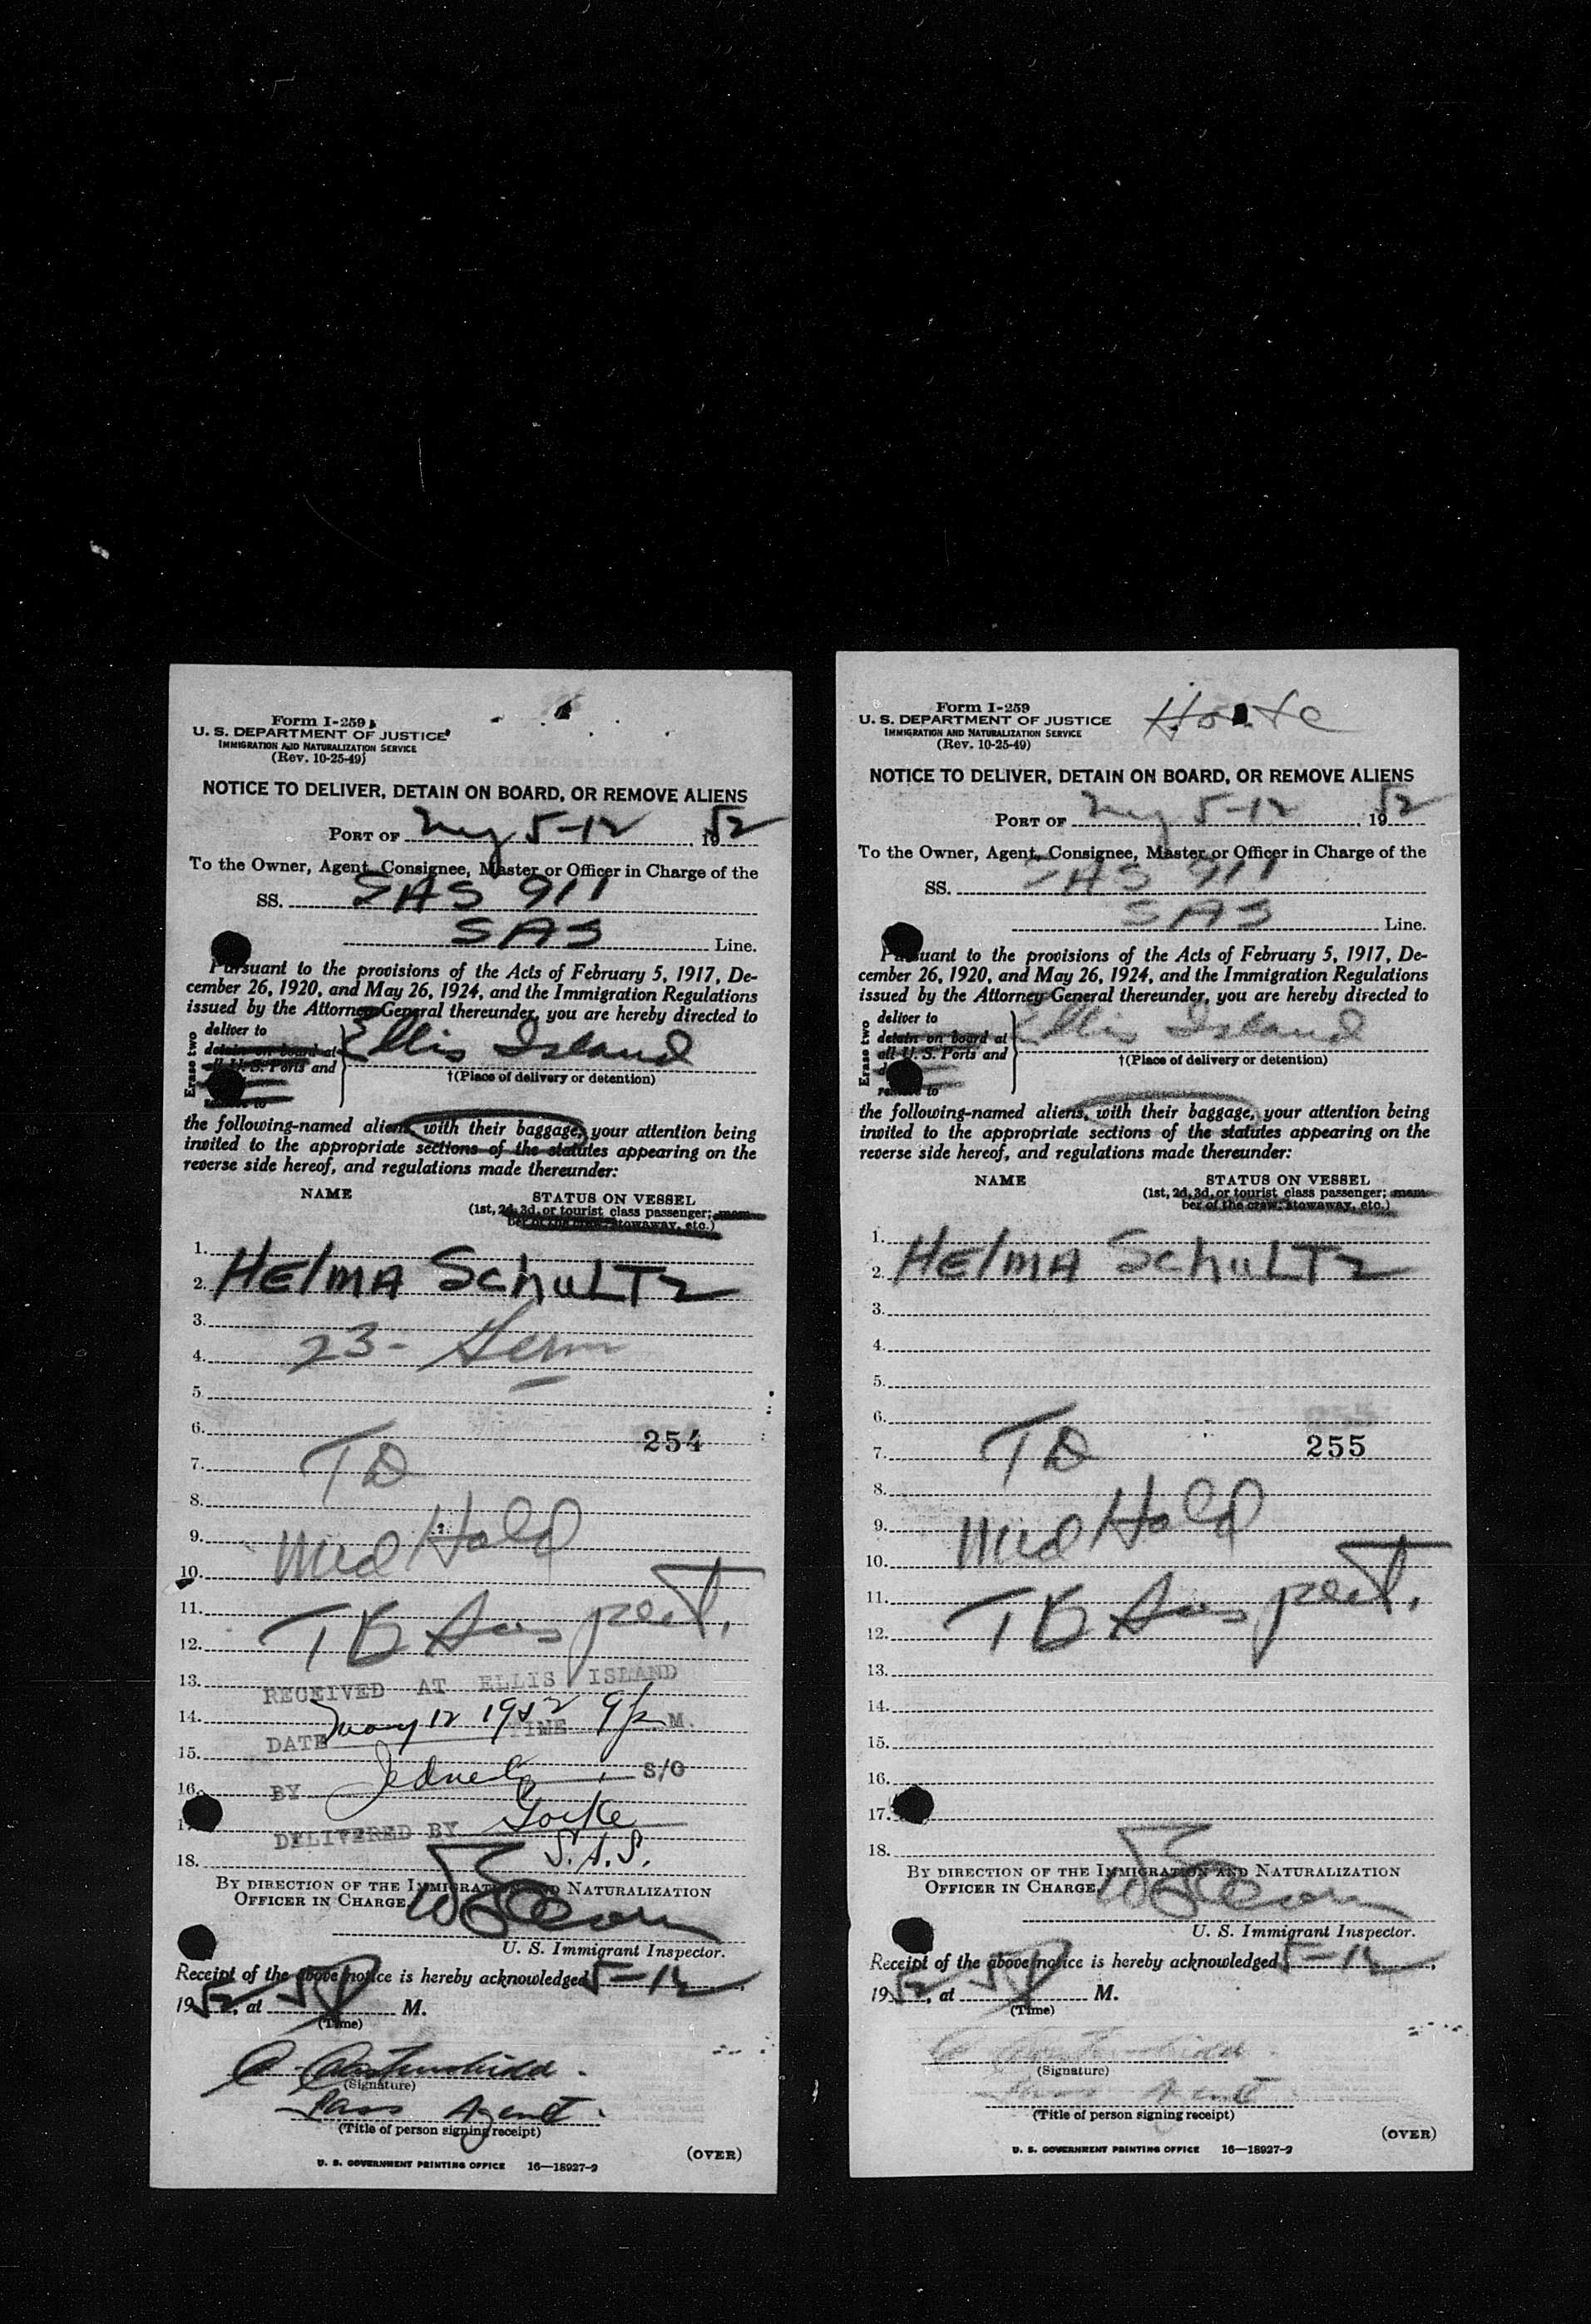 Form I-259
U. S. DEPARTMENT OF JUSTICE
IMMIGRATION AND NATURALIZATION SERVICE
(Rev. 10-25-49)
NOTICE TO DELIVER, DETAIN ON BOARD, OR REMOVE ALIENS
PORT OF NY 5-12, 1952
To the Owner, Agent, Consignee, Master or Officer in Charge of the
SS. SAS 911
SAS Line.
Pursuant to the provisions of the Acts of February 5, 1917, De-
cember 26, 1920, and May 26, 1924, and the Immigration Regulations
issued by the Attorney General thereunder, you are hereby directed to
Erase two
deliver to
detain on board at
all U. S. Ports and
remove to
Ellis Island
†(Place of delivery or detention)
the following-named aliens, with their baggage, your attention being
invited to the appropriate sections of the statutes appearing on the
reverse side hereof, and regulations made thereunder:
NAME
STATUS ON VESSEL
(1st, 2d, 3d, or tourist class passenger; mem-
ber of the crew, stowaway, etc.)
1.
2. HElmA SchuLTz
3.
4. 23- Germ
5.
6.
254
7. TD
8.
9. Med Hold
10.
11.
12. TB Suspect.
13. RECEIVED AT ELLIS ISLAND
14. DATE May 12 1952 TIME 9 P M.
15.
16. BY S/O
17. DELIVERED BY
18. S.A.S.
BY DIRECTION OF THE IMMIGRATION AND NATURALIZATION
OFFICER IN CHARGE,
U. S. Immigrant Inspector.
Receipt of the above notice is hereby acknowledged 5-12,
1952, at 5 P M.
(Time)
(Signature)
Pass Agent.
(Title of person signing receipt)
(OVER)
U. S. GOVERNMENT PRINTING OFFICE 16—18927-2
Form I-259
U. S. DEPARTMENT OF JUSTICE
IMMIGRATION AND NATURALIZATION SERVICE
(Rev. 10-25-49)
NOTICE TO DELIVER, DETAIN ON BOARD, OR REMOVE ALIENS
PORT OF NY 5-12, 1952
To the Owner, Agent, Consignee, Master or Officer in Charge of the
SS. SAS 911
SAS Line.
Pursuant to the provisions of the Acts of February 5, 1917, De-
cember 26, 1920, and May 26, 1924, and the Immigration Regulations
issued by the Attorney General thereunder, you are hereby directed to
Erase two
deliver to
detain on board at
all U. S. Ports and
remove to
Ellis Island
†(Place of delivery or detention)
the following-named aliens, with their baggage, your attention being
invited to the appropriate sections of the statutes appearing on the
reverse side hereof, and regulations made thereunder:
NAME
STATUS ON VESSEL
(1st, 2d, 3d, or tourist class passenger; mem-
ber of the crew, stowaway, etc.)
1.
2. HElmA SchuLTz
3.
4.
5.
6.
7. TD 255
8.
9. Med Hold
10.
11.
12. TB Suspect.
13.
14.
15.
16.
17.
18.
BY DIRECTION OF THE IMMIGRATION AND NATURALIZATION
OFFICER IN CHARGE,
U. S. Immigrant Inspector.
Receipt of the above notice is hereby acknowledged 5-12,
1952, at 5 P M.
(Time)
(Signature)
Pass Agent
(Title of person signing receipt)
(OVER)
U. S. GOVERNMENT PRINTING OFFICE 16—18927-2